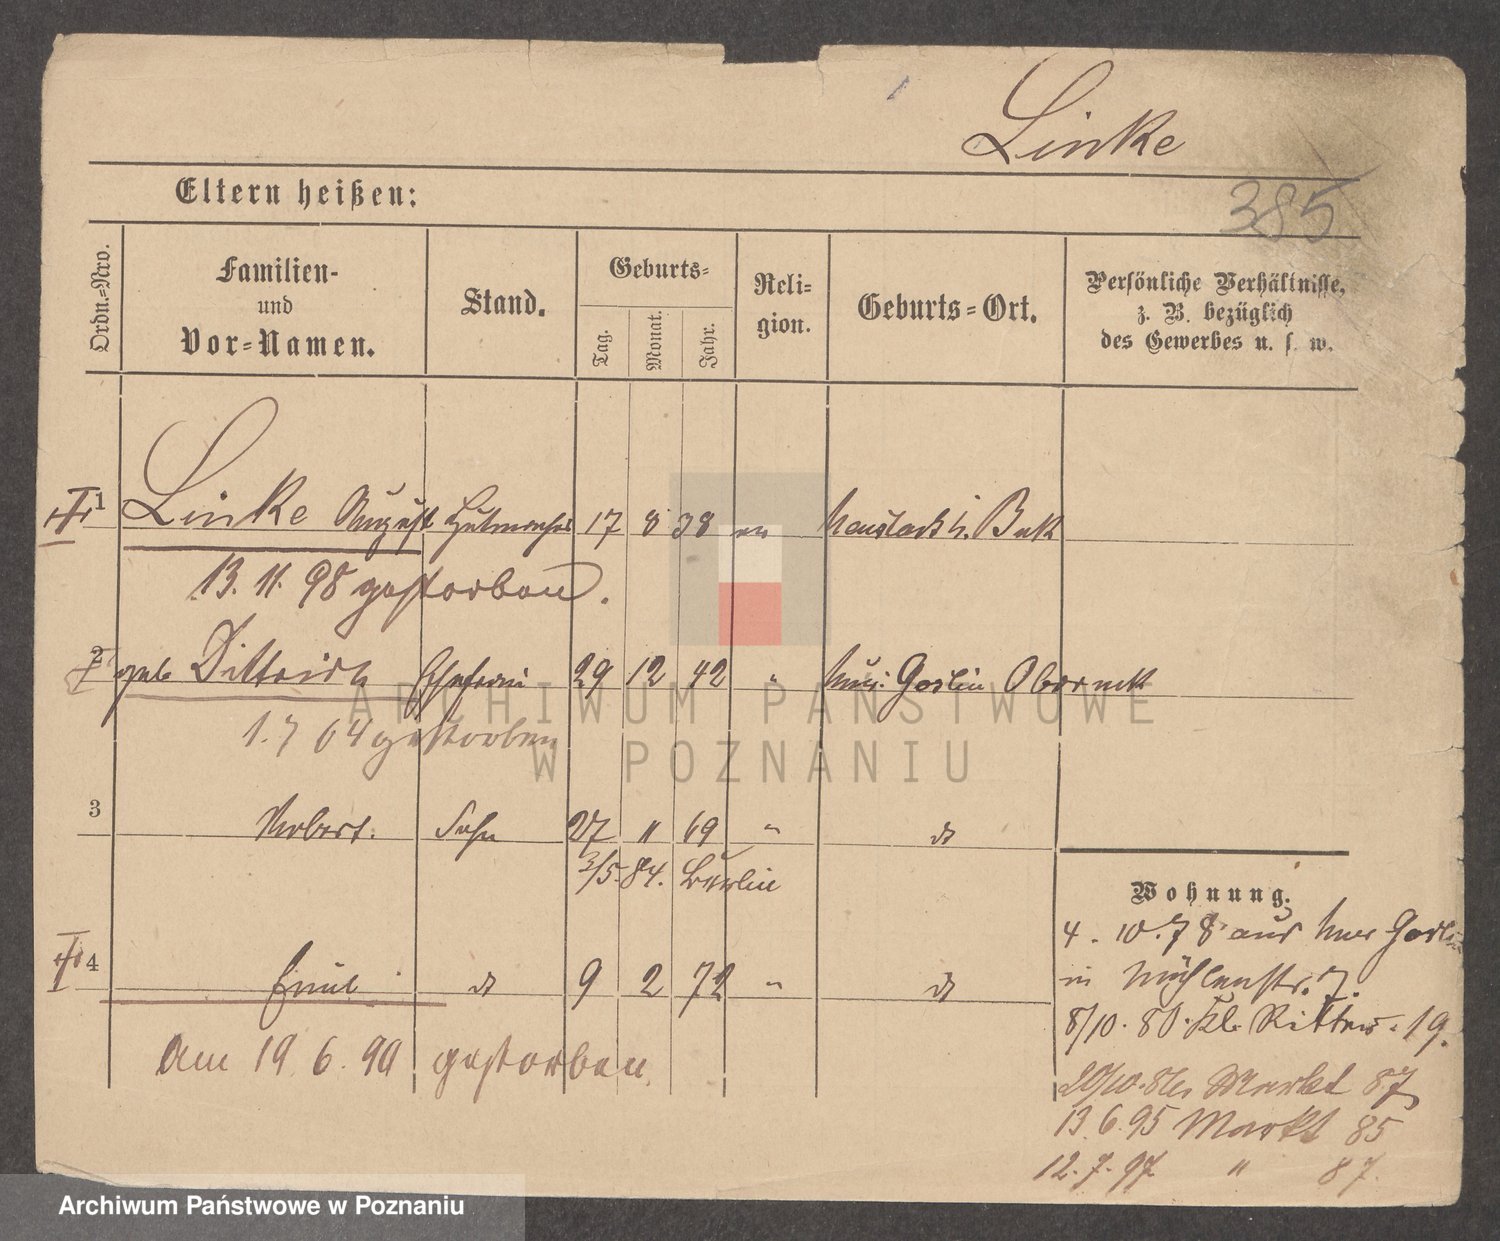 Linke
385
Eltern heißen:
Ordn.-Nro.
Familien-
und
Vor-Namen.
Stand.
Geburts-
Tag.
Monat.
Jahr.
Reli-
gion.
Geburts-Ort.
Persönliche Verhältnisse,
z. B. bezüglich
des Gewerbes u. s. w.
1 Linke August 17 8 38 Neustadt b. Buk
13. 11. 98 gestorben.
2 geb. Dittrich Ehefrau 29 12 42 " Mur. Goslin Obornik
1. 7 04 gestorben
3 Robert. Sohn 27 11 69 " do
3/5. 84. Berlin
4 Emil do 9 2 72 " do
Am 19 6. 90 gestorben
Wohnung.
4. 10. 78 aus Mur Goslin
in Mühlenstr. 7.
8/10. 80. Kl. Ritter. 19.
Markt 87
13. 6. 95 Markt 85
12. 7. 97 " 87.
ARCHIWUM PAŃSTWOWE
W POZNANIU
Archiwum Państwowe w Poznaniu